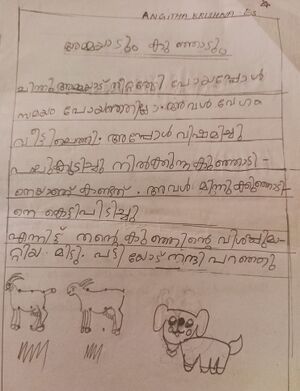 ANGITHA KRISHNA - ES
അമ്മയാടും കുഞ്ഞാടും
മിന്നു അമ്മയാട് തീറ്റതേടി പോയപ്പോൾ
സമയം പോയതറിഞ്ഞില്ല. അവൾ വേഗം
വീട്ടിലെത്തി. അപ്പോൾ വിഷമിച്ചു
പാലുകുടിച്ചു നിൽക്കുന്ന കുഞ്ഞാടി-
നെയാണ് കണ്ടത്. അവൾ മിന്നുക്കുഞ്ഞാടി-
നെ കെട്ടിപിടിച്ചു
എന്നിട്ട് തന്റെ കുഞ്ഞിന്റെ വിശപ്പുമാ-
റ്റിയ മിട്ടു പട്ടിയോട് നന്ദി പറഞ്ഞു